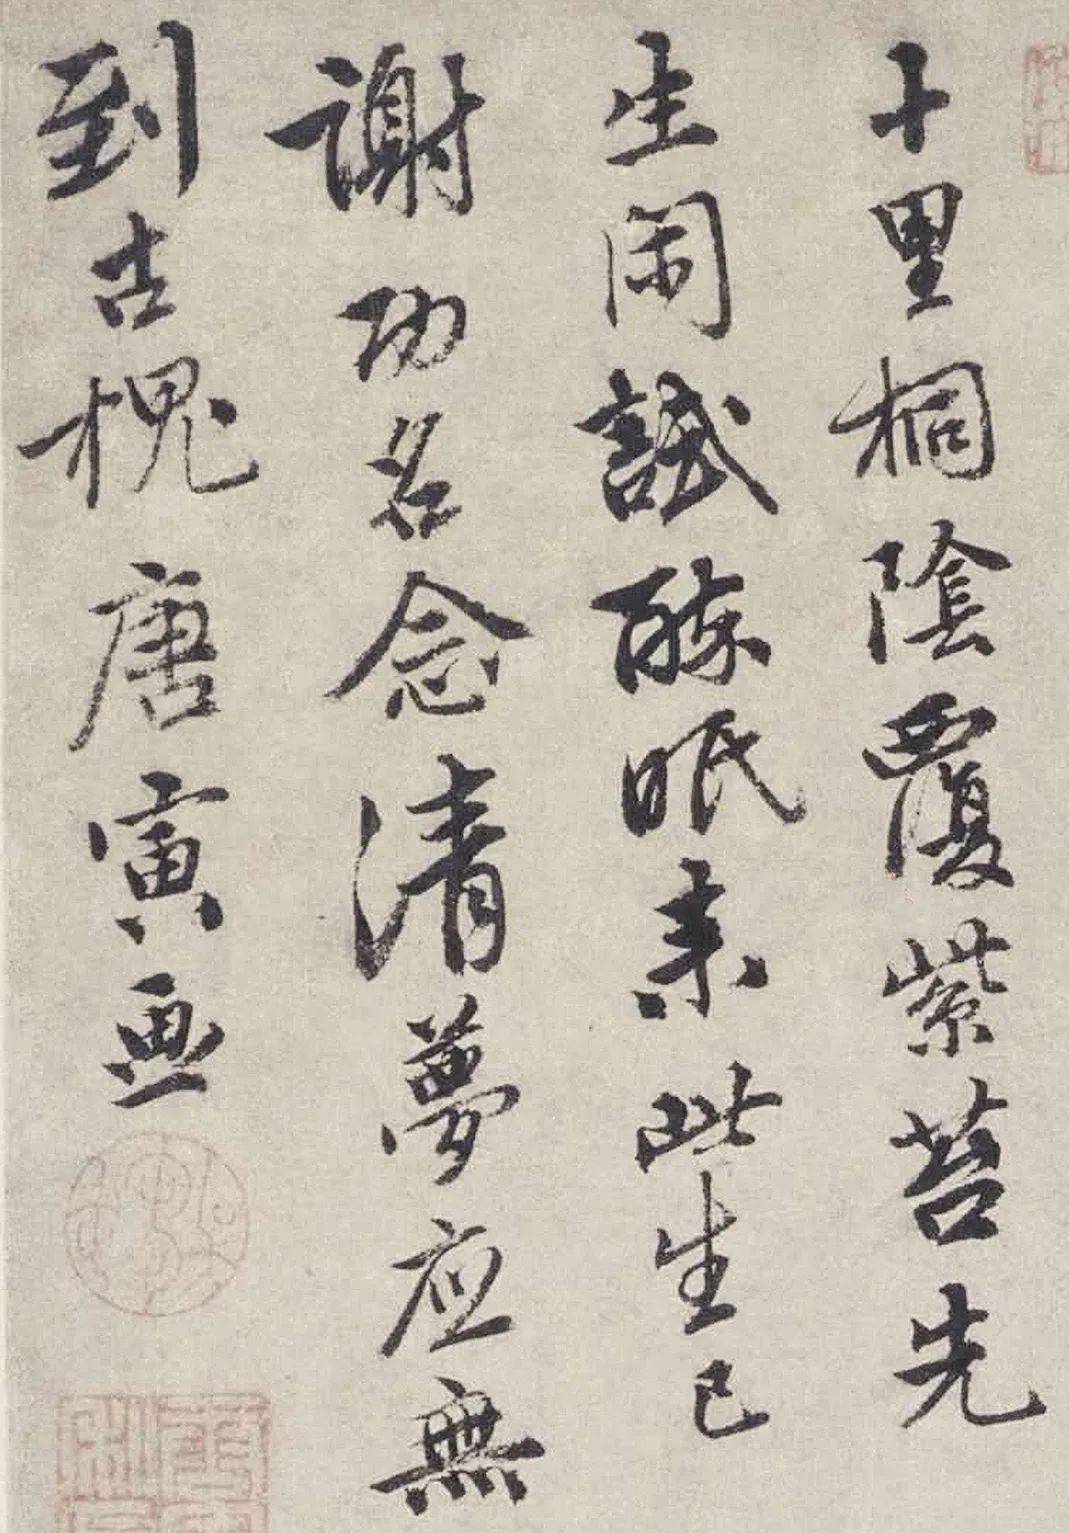 十里桐陰覆紫苔先
生閑試醉眠來此生已
謝功名念清夢應無
到古槐唐寅画